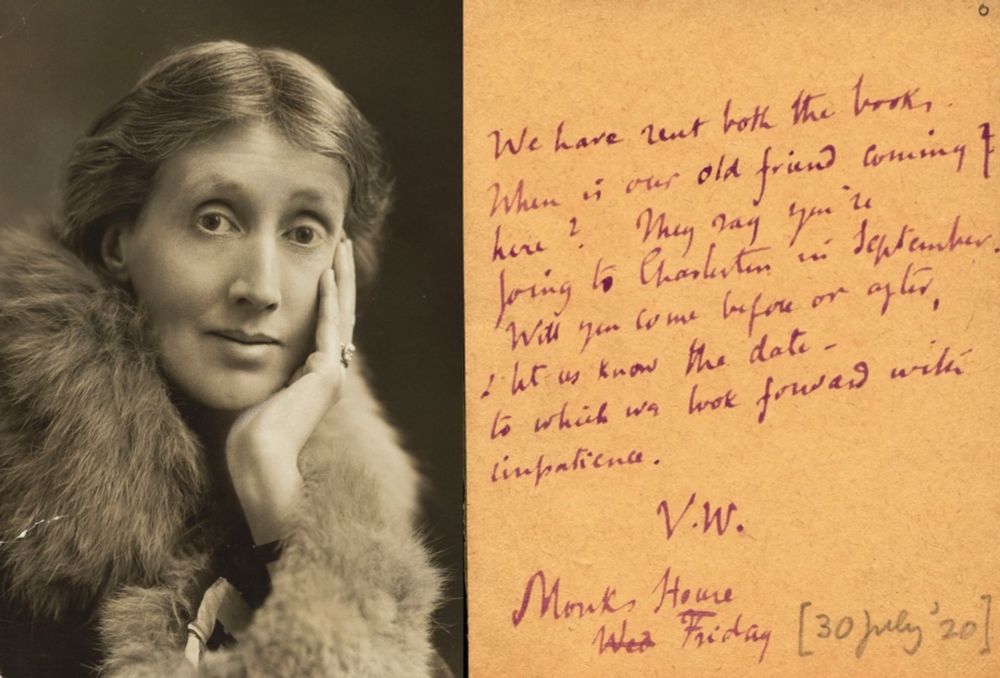 We have sent both the books.
When is our old friend coming
here? They say you're
going to Charleston in September.
Will you come before or after,
& let us know the date -
to which we look forward with
impatience.
V.W.
Monks House
Wed Friday [30 July '20]